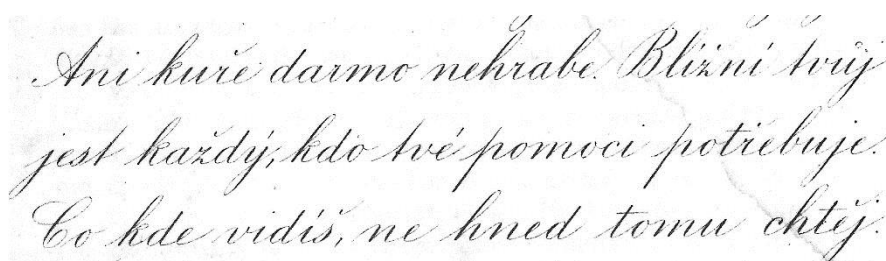 Ani kuře darmo nehrabe. Bližní tvůj
jest každý, kdo tvé pomoci potřebuje.
Co kde vidíš, ne hned tomu chtěj.